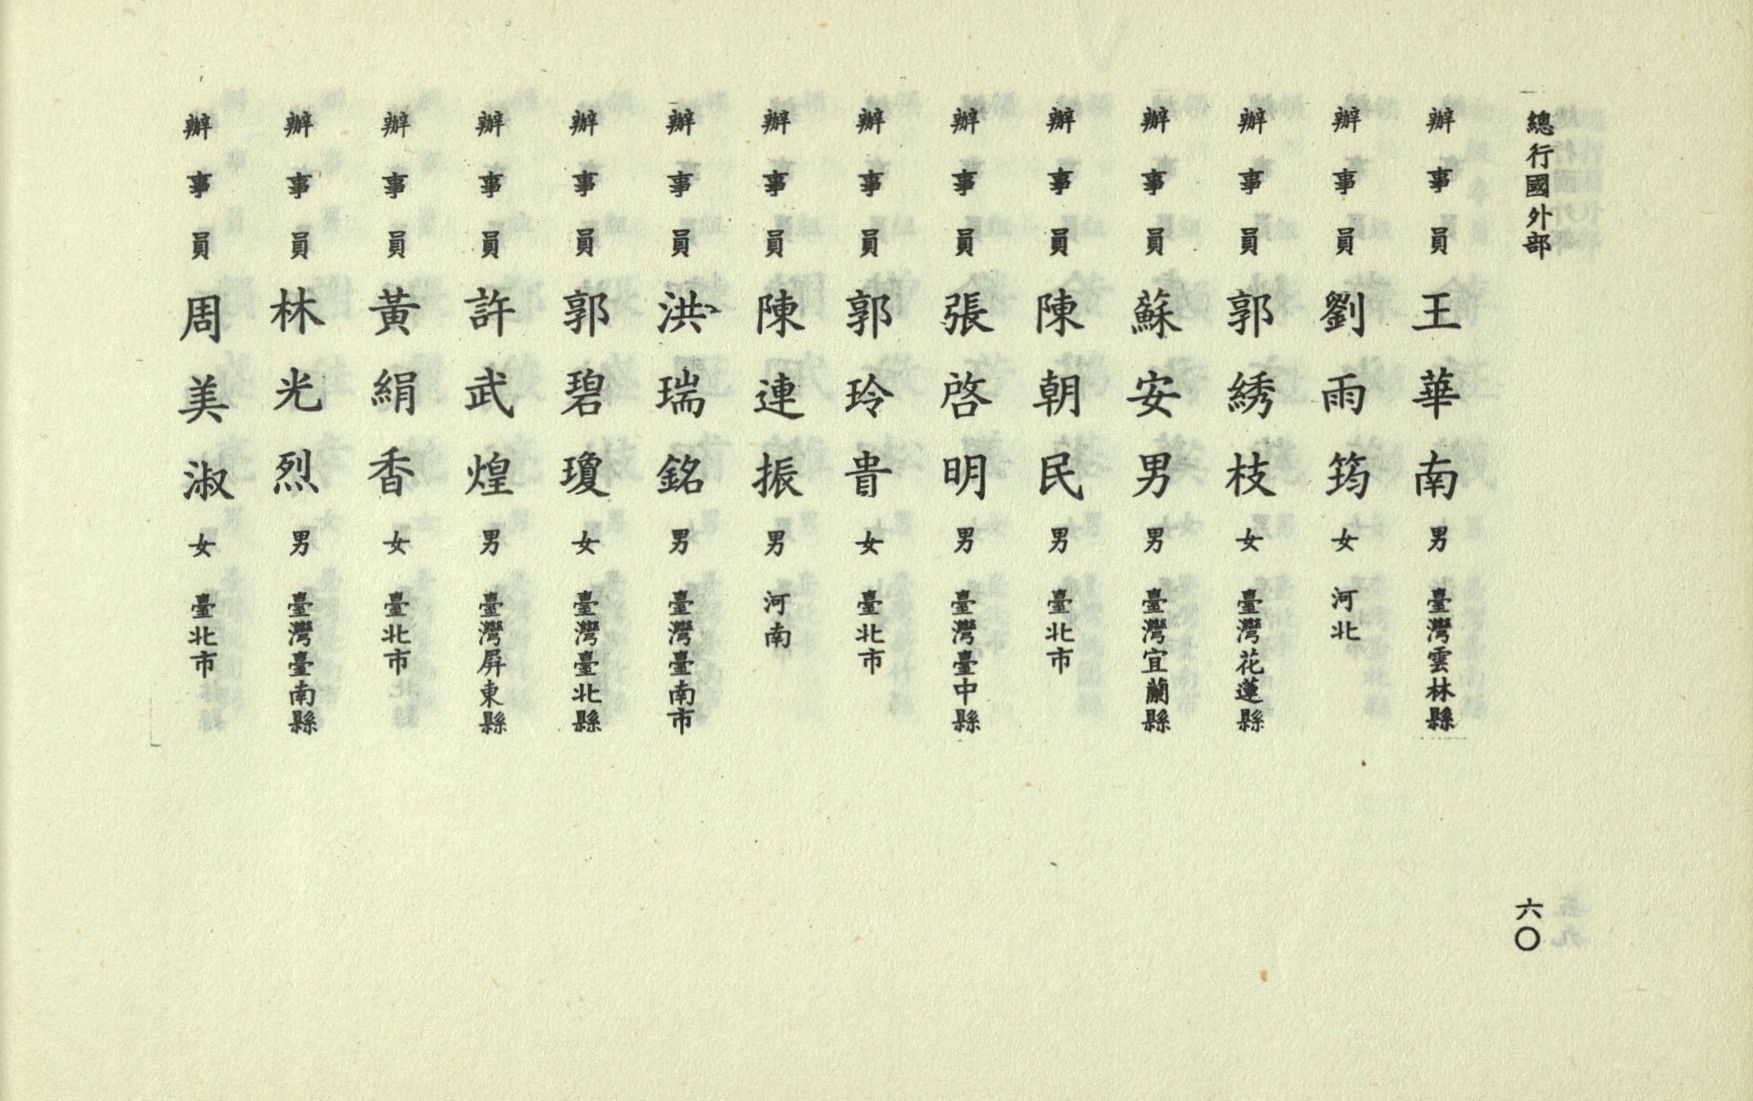 總行國外部
辦事員王華南男臺灣雲林縣
辦事員劉雨筠女河北
辦事員郭綉枝女臺灣花蓮縣
辦事員蘇安男男臺灣宜蘭縣
辦事員陳朝民男臺北市
辦事員張啓明男臺灣臺中縣
辦事員郭玲貴女臺北市
辦事員陳連振男河南
辦事員洪瑞銘男臺灣臺南市
辦事員郭碧瓊女臺灣臺北縣
辦事員許武煌男臺灣屏東縣
辦事員黃絹香女臺北市
辦事員林光烈男臺灣臺南縣
辦事員周美淑女臺北市
六〇